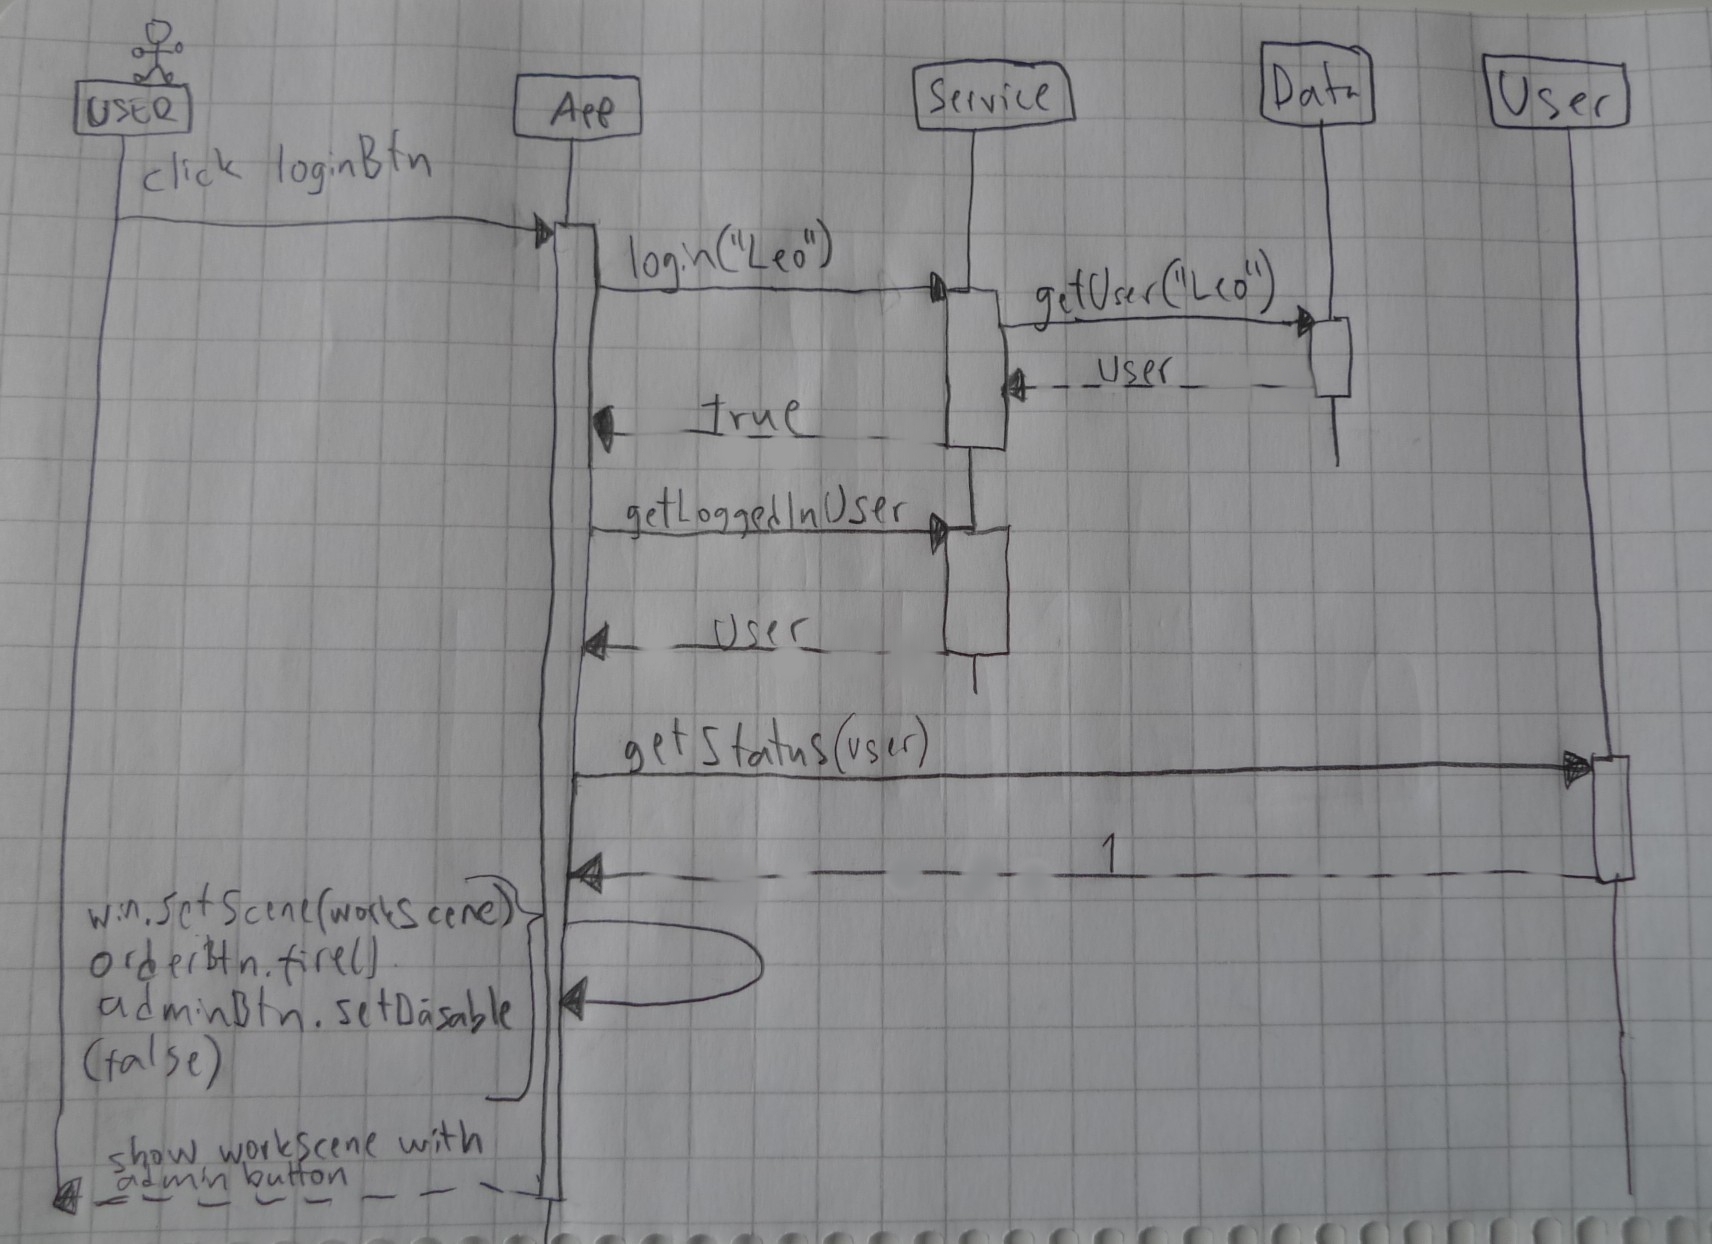 USER
App
Service
Data
User
click loginBtn
login("Leo")
getUser("Leo")
user
true
getLoggedInUser
User
getStatus(user)
1
win.setScene(workScene)
orderBtn.fire()
adminBtn.setDisable
(false)
show workScene with
admin button